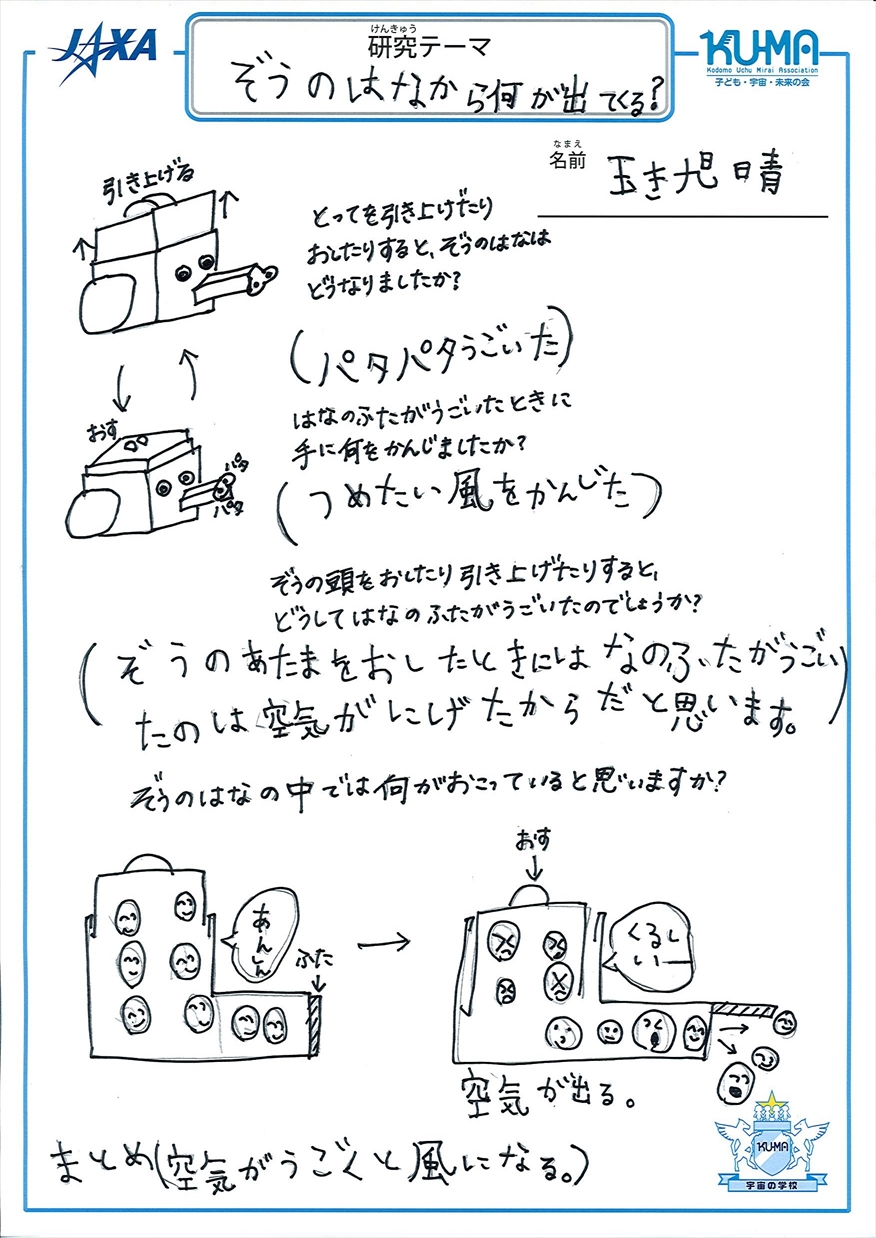 JAXA
けんきゅう
研究テーマ
ぞうのはなから何が出てくる?
KU-MA
Kodomo Uchu Mirai Association
子ども・宇宙・未来の会
なまえ
名前
玉き旭晴
引き上げる
とってを引き上げたり
おしたりすると、ぞうのはなは
どうなりましたか?
(パタパタうごいた)
おす
パタ
パタ
はなのふたがうごいたときに
手に何をかんじましたか?
(つめたい風をかんじた)
ぞうの頭をおしたり引き上げたりすると、
どうしてはなのふたがうごいたのでしょうか?
(ぞうのあたまをおしたときにはなのふたがうごい
たのは空気がにげたからだと思います。)
ぞうのはなの中では何がおこっていると思いますか?
あんしん
ふた
おす
くるし
いー
空気が出る。
まとめ(空気がうごくと風になる。)
KU-MA
宇宙の学校